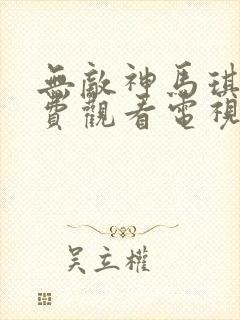 無敵神馬琪
費觀看電視
吳立權